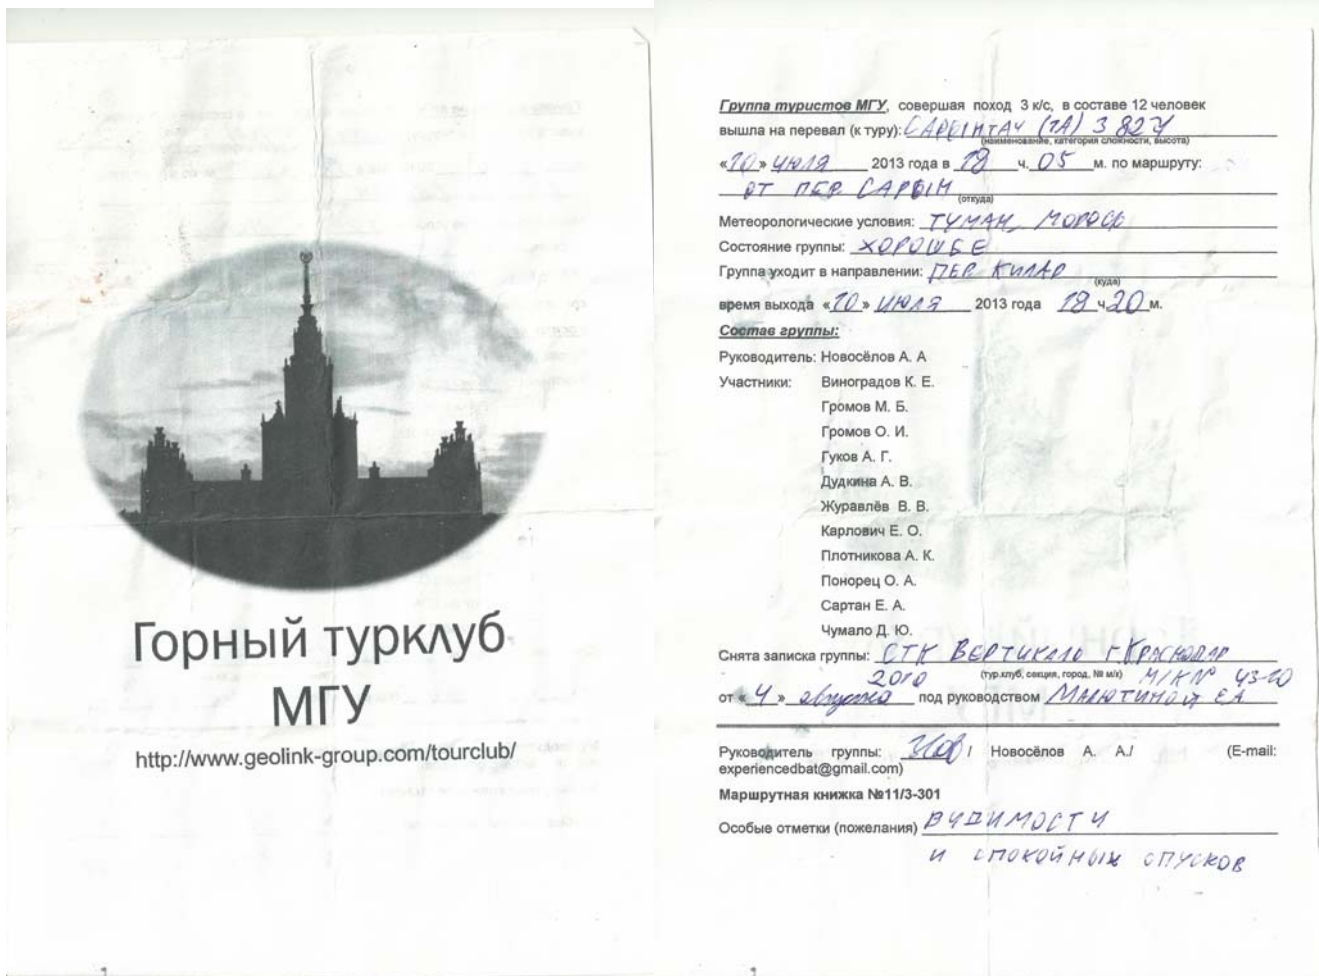 Горный турклуб
МГУ
http://www.geolink-group.com/tourclub/
1
Группа туристов МГУ, совершая поход 3 к/с, в составе 12 человек
вышла на перевал (к туру): САРЫНТАУ (1А) 3 827
(наименование, категория сложности, высота)
«10» июля 2013 года в 18 ч. 05 м. по маршруту:
ОТ ПЕР САРЫН
(откуда)
Метеорологические условия: ТУМАН, МОРОСЬ
Состояние группы: ХОРОШЕЕ
Группа уходит в направлении: ПЕР КИЛАР
(куда)
время выхода «10» июля 2013 года 18 ч 20 м.
Состав группы:
Руководитель: Новосёлов А. А
Участники: Виноградов К. Е.
Громов М. Б.
Громов О. И.
Гуков А. Г.
Дудкина А. В.
Журавлёв В. В.
Карлович Е. О.
Плотникова А. К.
Понорец О. А.
Сартан Е. А.
Чумало Д. Ю.
Снята записка группы: СТК Вертикаль г. Краснодар
(тур.клуб, секция, город, № м/к) М/К № 43-10
2010
от «4» августа под руководством Малютиной ЕА
Руководитель группы: / Новосёлов А. А./ (E-mail:
experiencedbat@gmail.com)
Маршрутная книжка №11/3-301
Особые отметки (пожелания) ВИДИМОСТИ
И СПОКОЙНЫХ СПУСКОВ
1